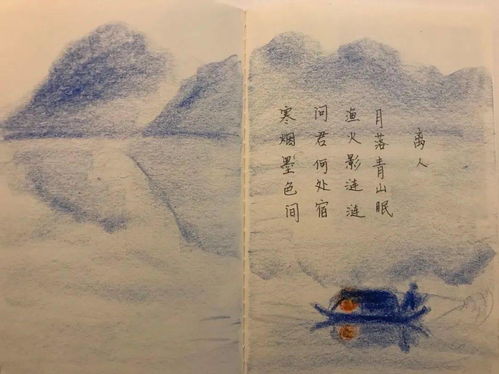 离人
月落青山眠
渔火影涟涟
问君何处宿
寒烟墨色间